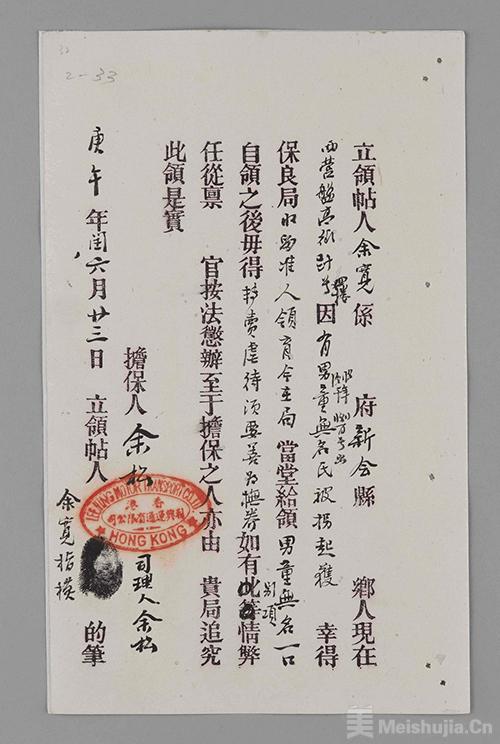 立領帖人余寬係　府新會縣　鄉人現在
西營盤高街
因有男童無名氏被拐起獲　幸得
保良局收留准人領育今在局當堂給領男童無名一口
自領之後毋得轉賣虐待須要善為撫養如有此等情弊
別項
任從稟　官按法懲辦至于擔保之人亦由　貴局追究
此領是實
擔保人余松
司理人余松
LEE HING MOTOR TRANSPORT CO. LTD.
香港
利興運通有限公司
HONG KONG
庚午年閏六月廿三日　立領帖人　的筆
余寬指模
2-33
美 Meishujia.Cn